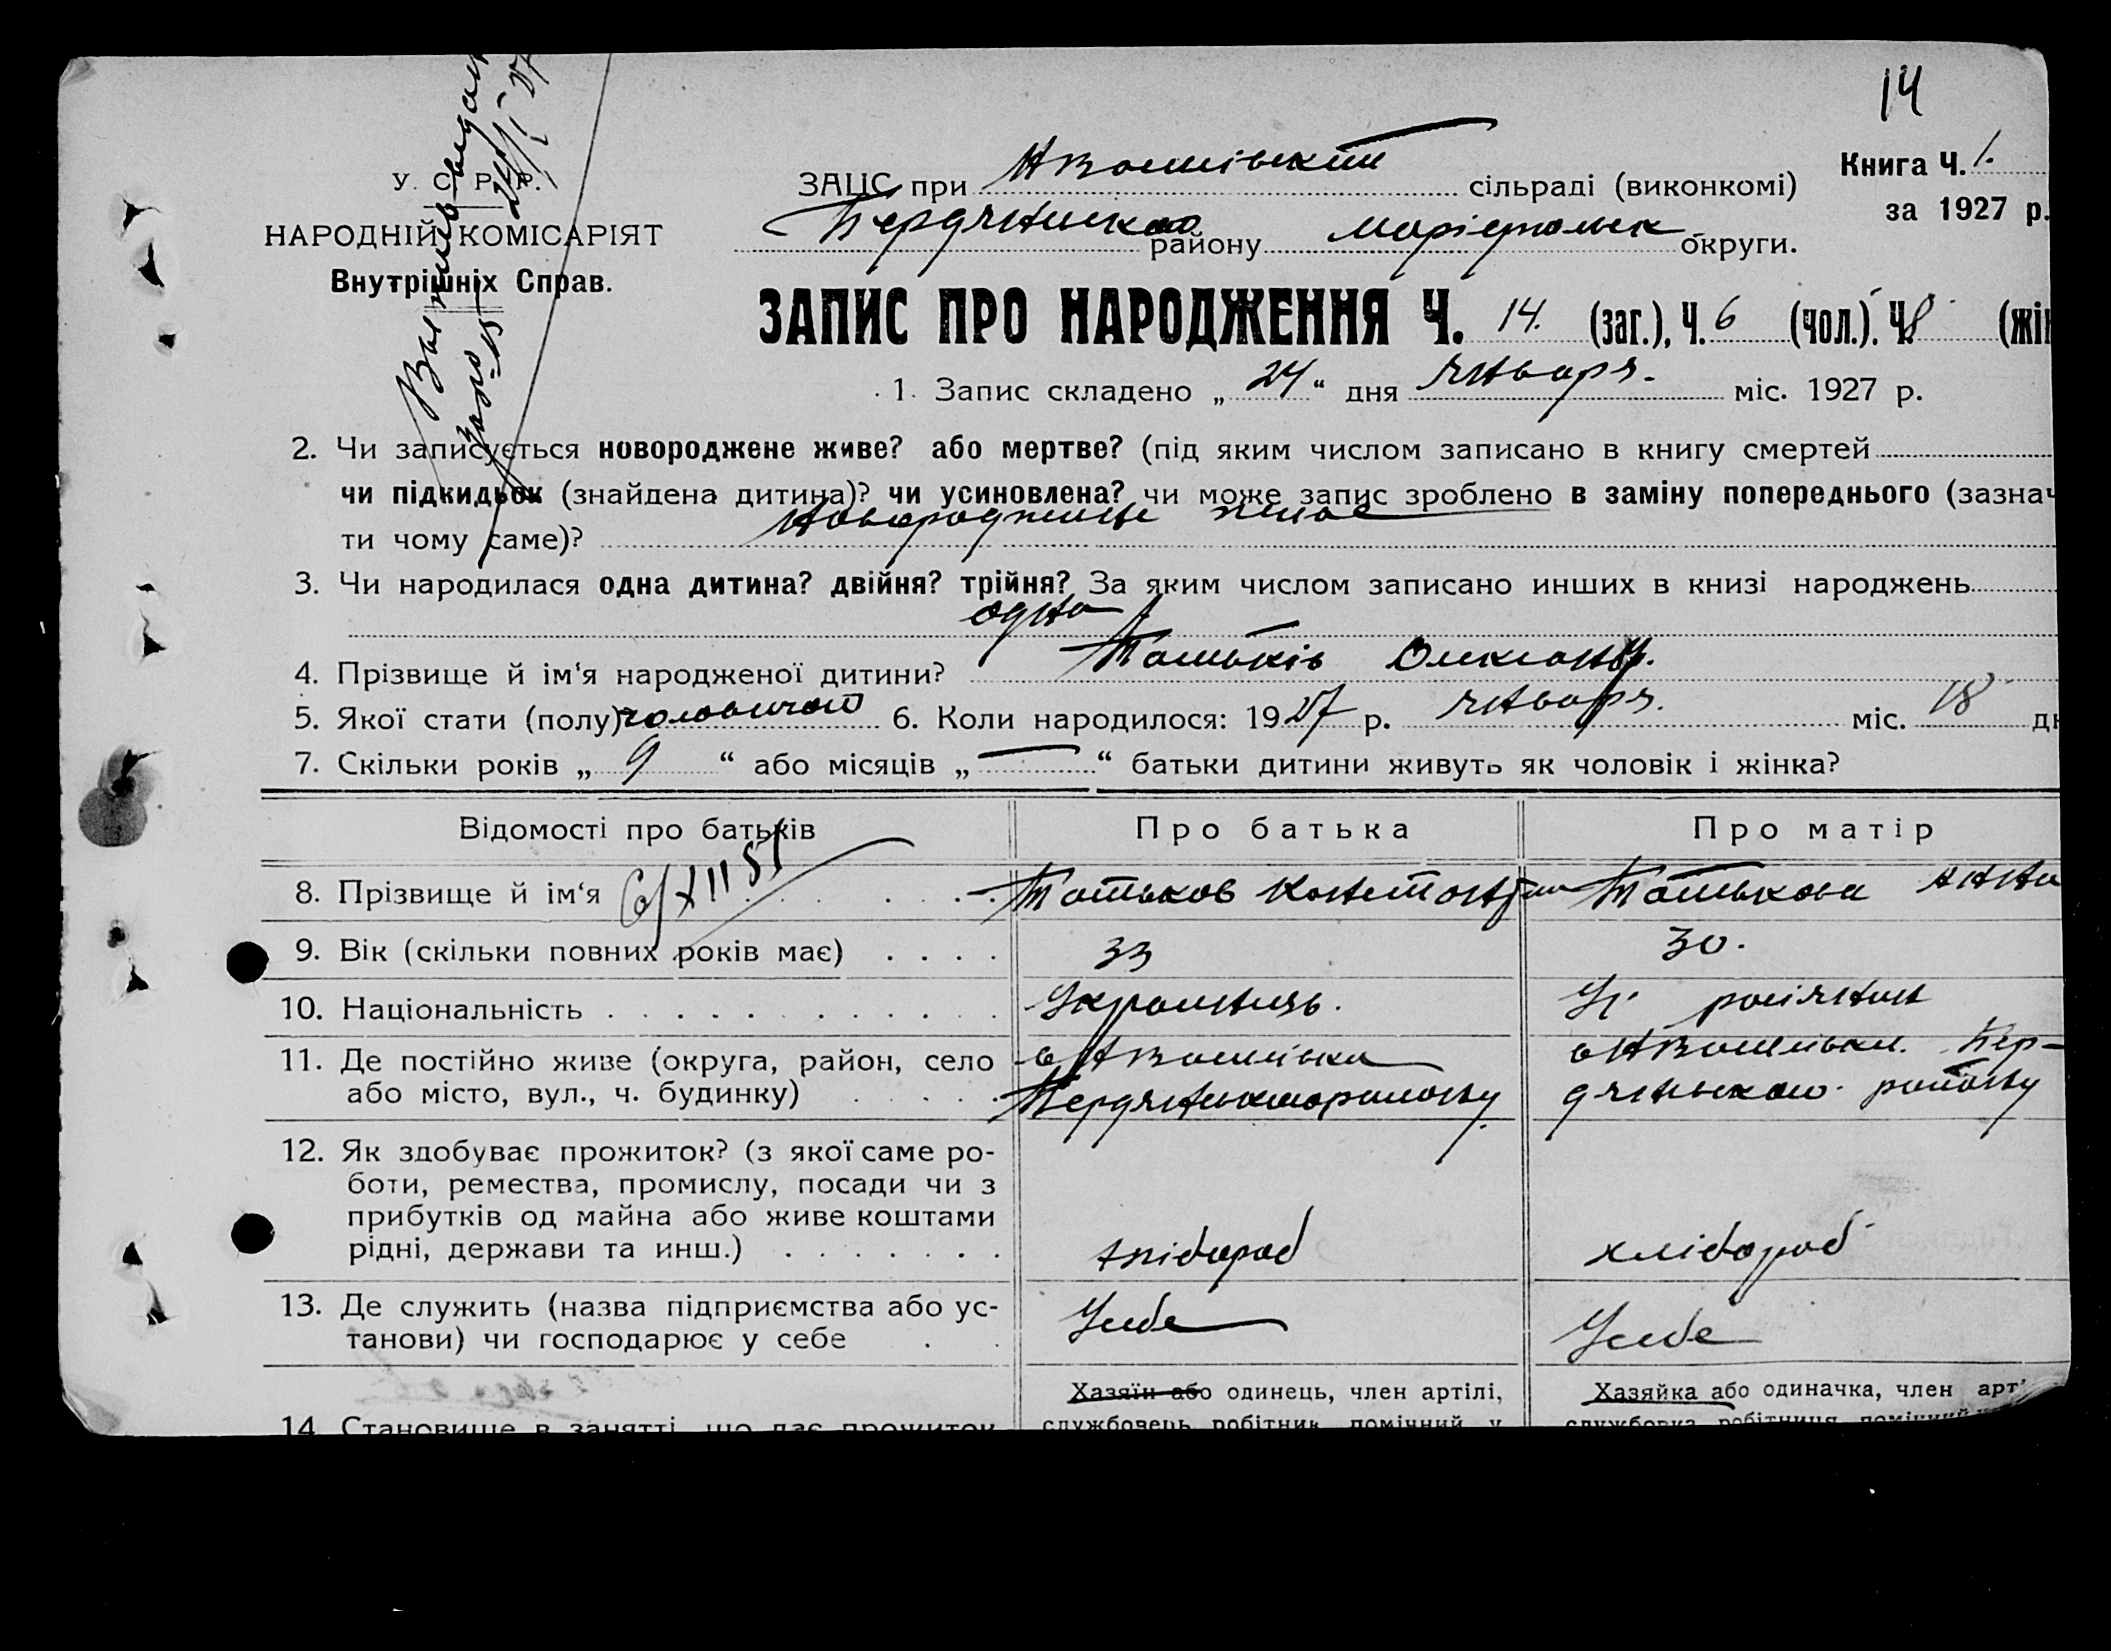 14
У. С. Р. Р.
НАРОДНІЙ КОМІСАРІЯТ
Внутрішніх Справ.
ЗАЦС при сільраді (виконкомі)
Книга Ч. 1.
за 1927 р.
Бердянского району Маріупольск округи.
ЗАПИС ПРО НАРОДЖЕННЯ Ч. 14. (заг.), Ч. 6 (чол.). Ч. 8 (жін
1. Запис складено „ 24 “ дня января. міс. 1927 р.
2. Чи записується новороджене живе? або мертве? (під яким числом записано в книгу смертей
чи підкидьок (знайдена дитина)? чи усиновлена? чи може запис зроблено в заміну попереднього (зазнач
ти чому саме)? новороджене живое
3. Чи народилася одна дитина? двійня? трійня? За яким числом записано инших в книзі народжень
одна
4. Прізвище й ім‘я народженої дитини? Олександр.
5. Якої стати (полу) 6. Коли народилося: 1927 р. января. міс. 18 дн
7. Скільки років „ 9 “ або місяців „ — “ батьки дитини живуть як чоловік і жінка?
Відомості про батьків Про батька Про матір
8. Прізвище й ім‘я Константин Анна
9. Вік (скільки повних років має) 33 30.
10. Національність Украинець. росіянин
11. Де постійно живе (округа, район, село
або місто, вул., ч. будинку) Бер-
дянького району
12. Як здобуває прожиток? (з якої саме ро-
боти, ремества, промислу, посади чи з
прибутків од майна або живе коштами
рідні, держави та инш.) хлібороб хлібороб
13. Де служить (назва підприємства або ус-
танови) чи господарює у себе Усебе Усебе
Хазяїн або одинець, член артілі, Хазяйка або одиначка, член арт
14. Становище в занятті, що дає прожиток службовець, робітник, помічний у службовка робітниця помічний